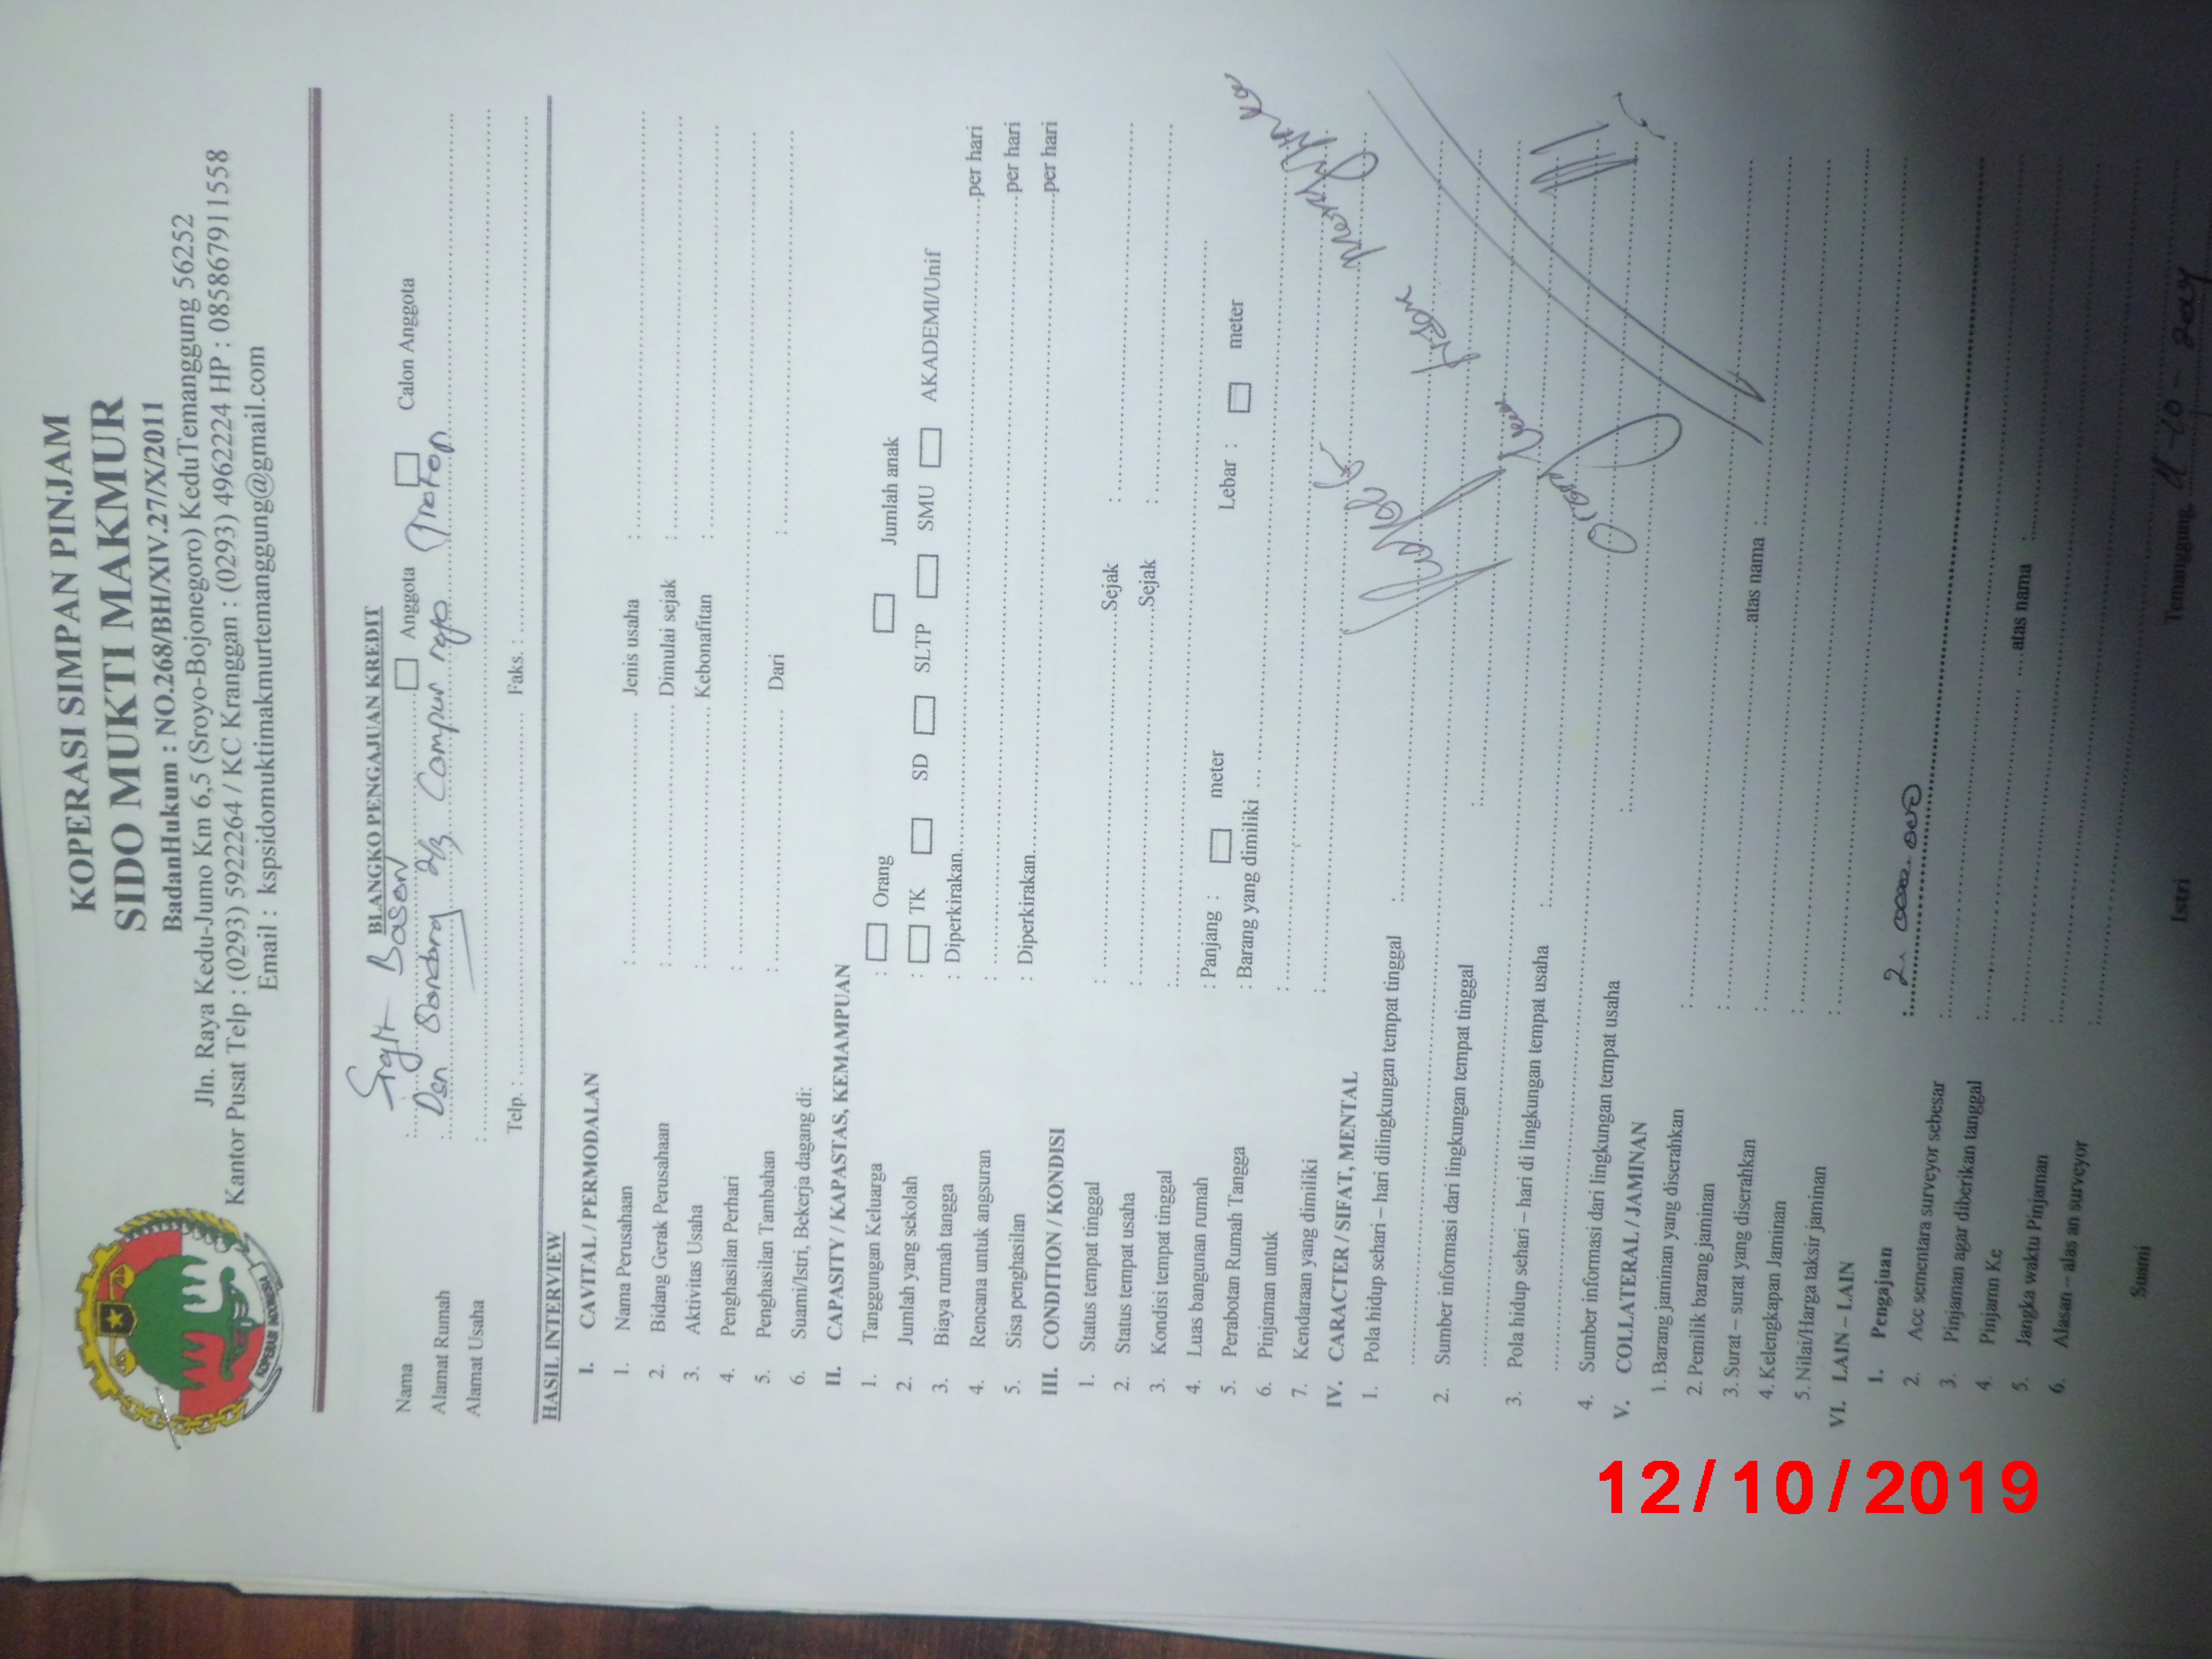 KOPERASI SIMPAN PINJAM
SIDO MUKTI MAKMUR
BadanHukum : NO.268/BH/XIV.27/X/2011
Jln. Raya Kedu-Jumo Km 6,5 (Sroyo-Bojonegoro) KeduTemanggung 56252
Kantor Pusat Telp : (0293) 5922264 / KC Kranggan : (0293) 4962224 HP : 085867911558
Email : kspsidomuktimakmurtemanggung@gmail.com
KOPERASI INDONESIA
BLANGKO PENGAJUAN KREDIT
Nama : Sigit Basori Anggota Calon Anggota
Alamat Rumah : Dsn 2/3 Campur
Alamat Usaha :
Telp. : Faks. :
HASIL INTERVIEW
I. CAVITAL / PERMODALAN
1. Nama Perusahaan : Jenis usaha :
2. Bidang Gerak Perusahaan : Dimulai sejak :
3. Aktivitas Usaha : Kebonafitan :
4. Penghasilan Perhari :
5. Penghasilan Tambahan : Dari :
6. Suami/Istri, Bekerja dagang di:
II. CAPASITY / KAPASTAS, KEMAMPUAN
1. Tanggungan Keluarga : Orang Jumlah anak
2. Jumlah yang sekolah : TK SD SLTP SMU AKADEMI/Unif
3. Biaya rumah tangga : Diperkirakan per hari
4. Rencana untuk angsuran : per hari
5. Sisa penghasilan : Diperkirakan per hari
III. CONDITION / KONDISI
1. Status tempat tinggal : Sejak :
2. Status tempat usaha : Sejak :
3. Kondisi tempat tinggal :
4. Luas bangunan rumah : Panjang : meter Lebar : meter
5. Perabotan Rumah Tangga : Barang yang dimiliki
6. Pinjaman untuk :
7. Kendaraan yang dimiliki :
IV. CARACTER / SIFAT, MENTAL
1. Pola hidup sehari – hari dilingkungan tempat tinggal :
2. Sumber informasi dari lingkungan tempat tinggal :
3. Pola hidup sehari – hari di lingkungan tempat usaha :
4. Sumber informasi dari lingkungan tempat usaha :
V. COLLATERAL / JAMINAN
1. Barang jaminan yang diserahkan :
2. Pemilik barang jaminan :
3. Surat – surat yang diserahkan : atas nama :
4. Kelengkapan Jaminan :
5. Nilai/Harga taksir jaminan :
VI. LAIN – LAIN
1. Pengajuan : 2.000.000
2. Acc sementara surveyor sebesar :
3. Pinjaman agar diberikan tanggal :
4. Pinjamn Ke :
5. Jangka waktu Pinjaman : atas nama :
6. Alasan – alas an surveyor :
Temanggung, 11-10-2019
Suami Istri
12/10/2019